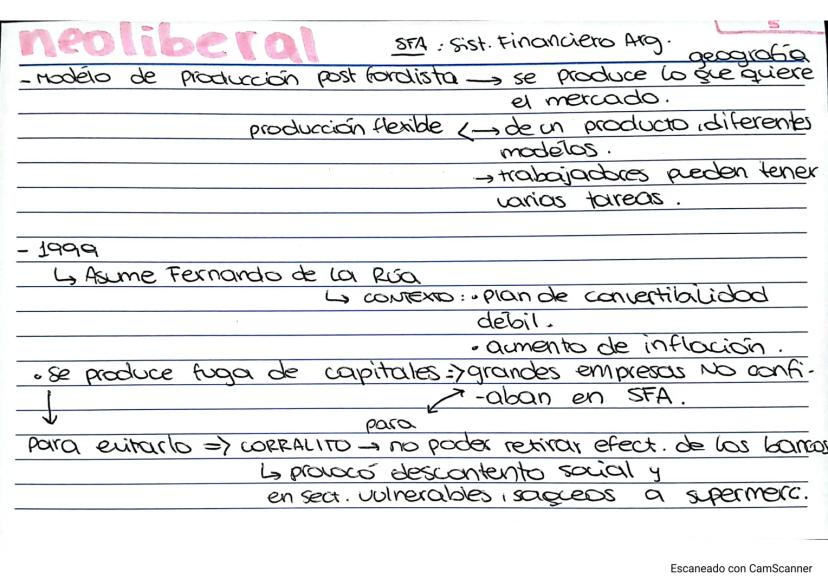 5
neoliberal SFA : Sist. Financiero Arg.
geografía
- Modelo de producción post fordista → se produce lo que quiere
el mercado.
producción flexible <→ de un producto, diferentes
modelos.
→ trabajadores pueden tener
varias tareas.
- 1999
↳ Asume Fernando de la Rúa
↳ CONTEXTO : • Plan de convertibilidad
débil.
• aumento de inflación.
• se produce fuga de capitales => grandes empresas NO confi-
-aban en SFA.
para
Para evitarlo => CORRALITO → no poder retirar efect. de los bancos
↳ provocó descontento social y
en sect. vulnerables, saqueos a supermerc.
Escaneado con CamScanner